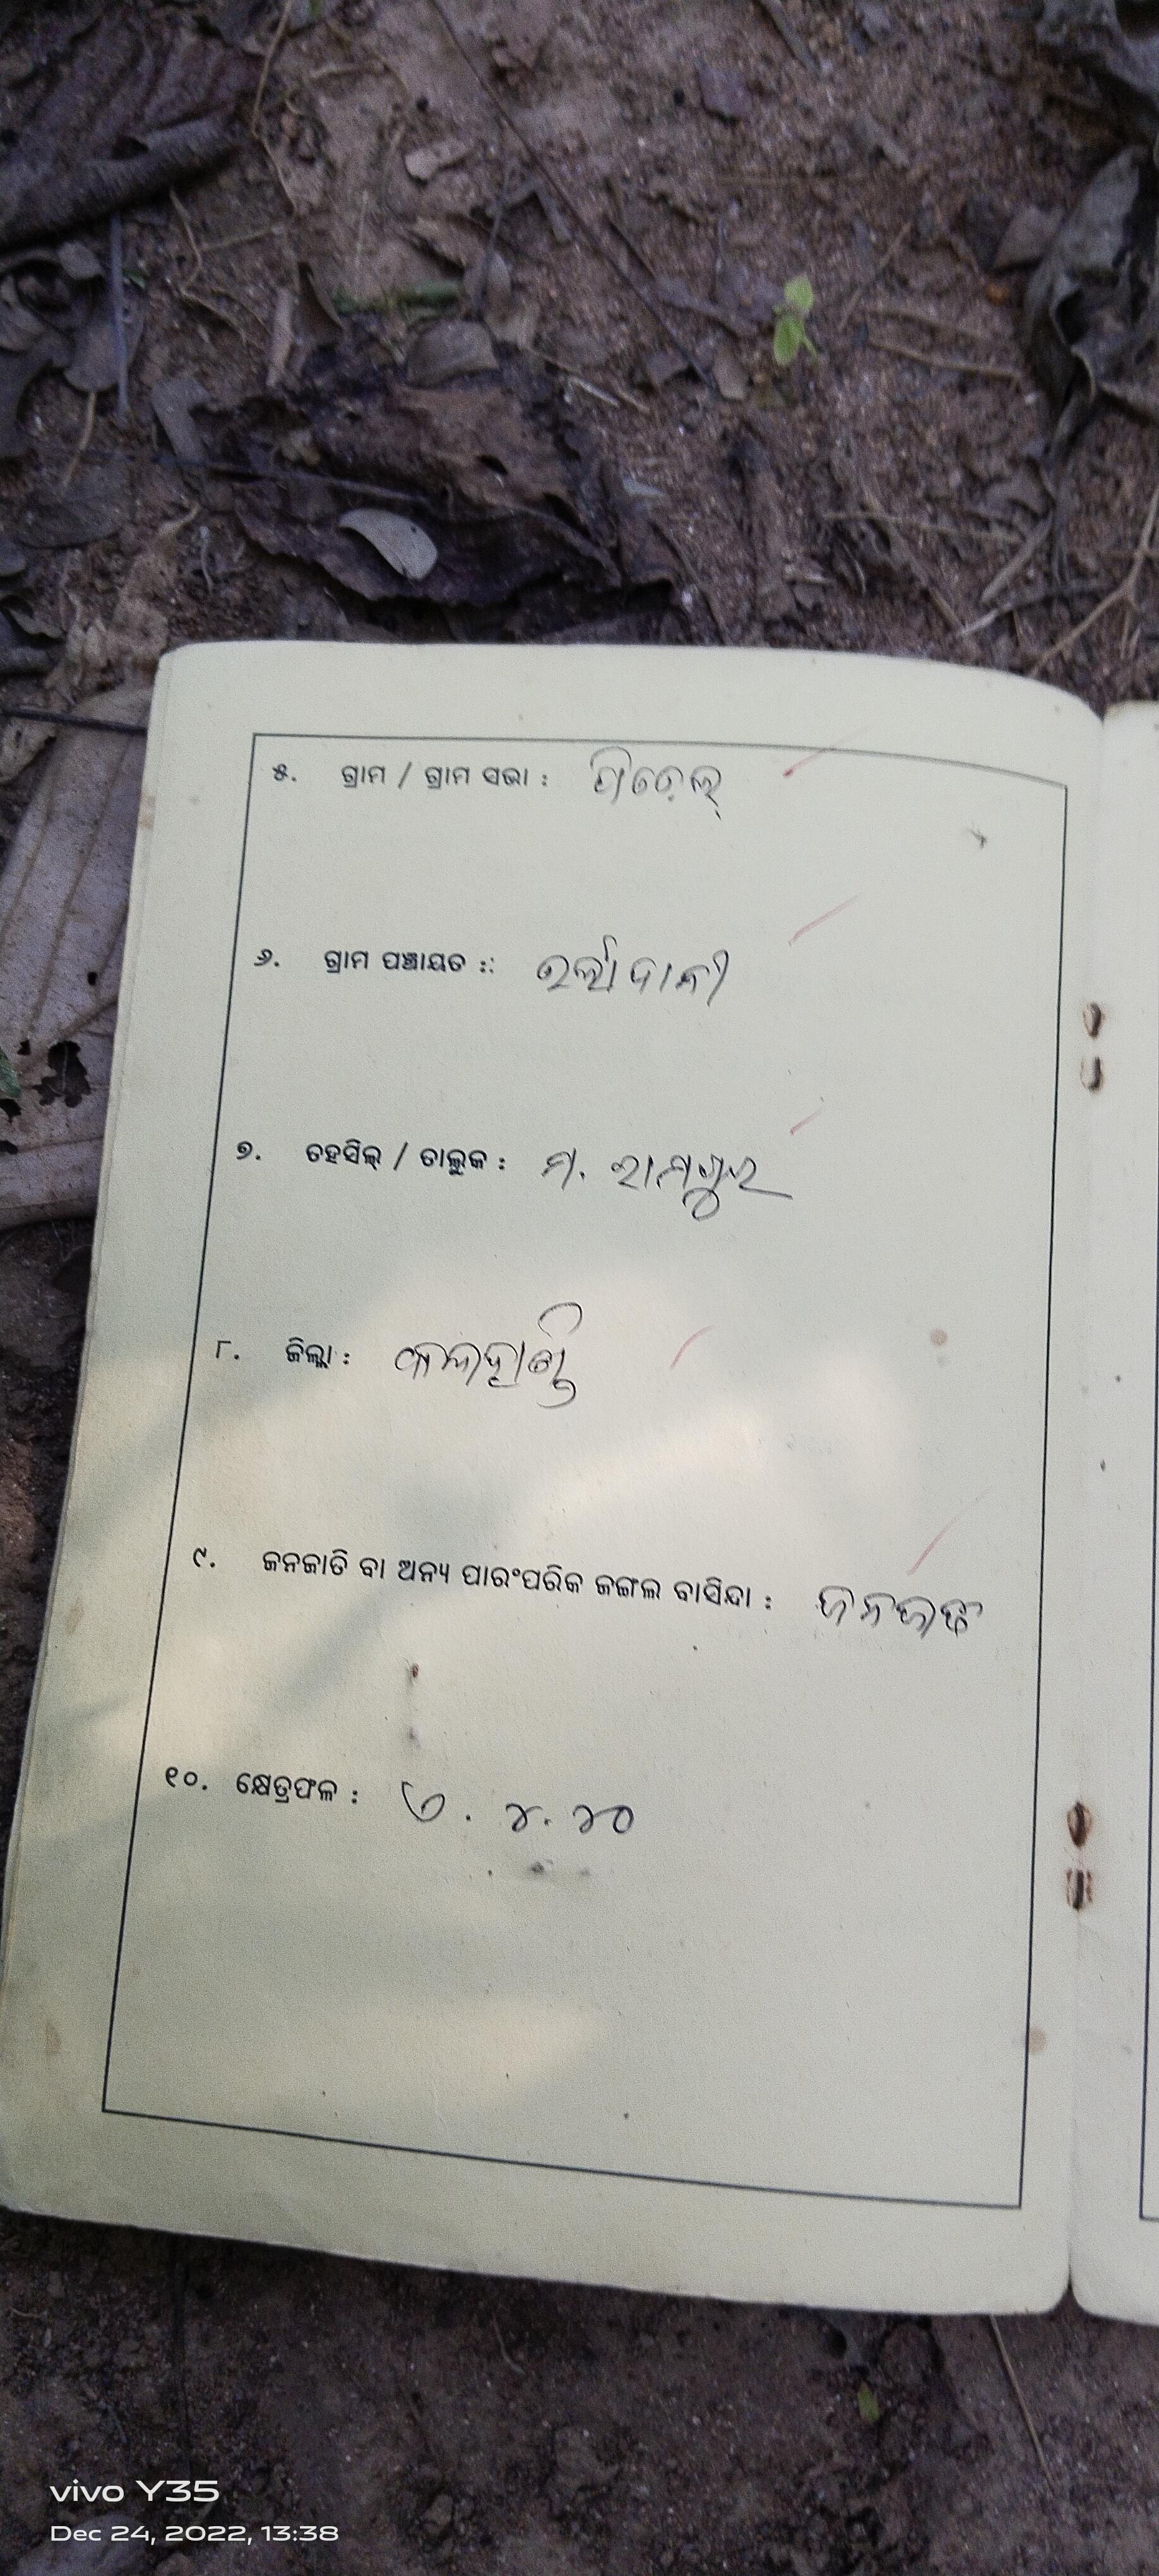 ୫. ଗ୍ରାମ / ଗ୍ରାମ ସଭା :
୬. ଗ୍ରାମ ପଞ୍ଚାୟତ ::
୭. ତହସିଲ୍ / ତାଲୁକ : ମ. ରାମପୁର
୮. ଜିଲ୍ଲା : କଳାହାଣ୍ଡି
୯. ଜନଜାତି ବା ଅନ୍ୟ ପାରଂପରିକ ଜଙ୍ଗଲ ବାସିନ୍ଦା : ଜନଜାତି
୧୦. କ୍ଷେତ୍ରଫଳ :
vivo Y35
Dec 24, 2022, 13:38